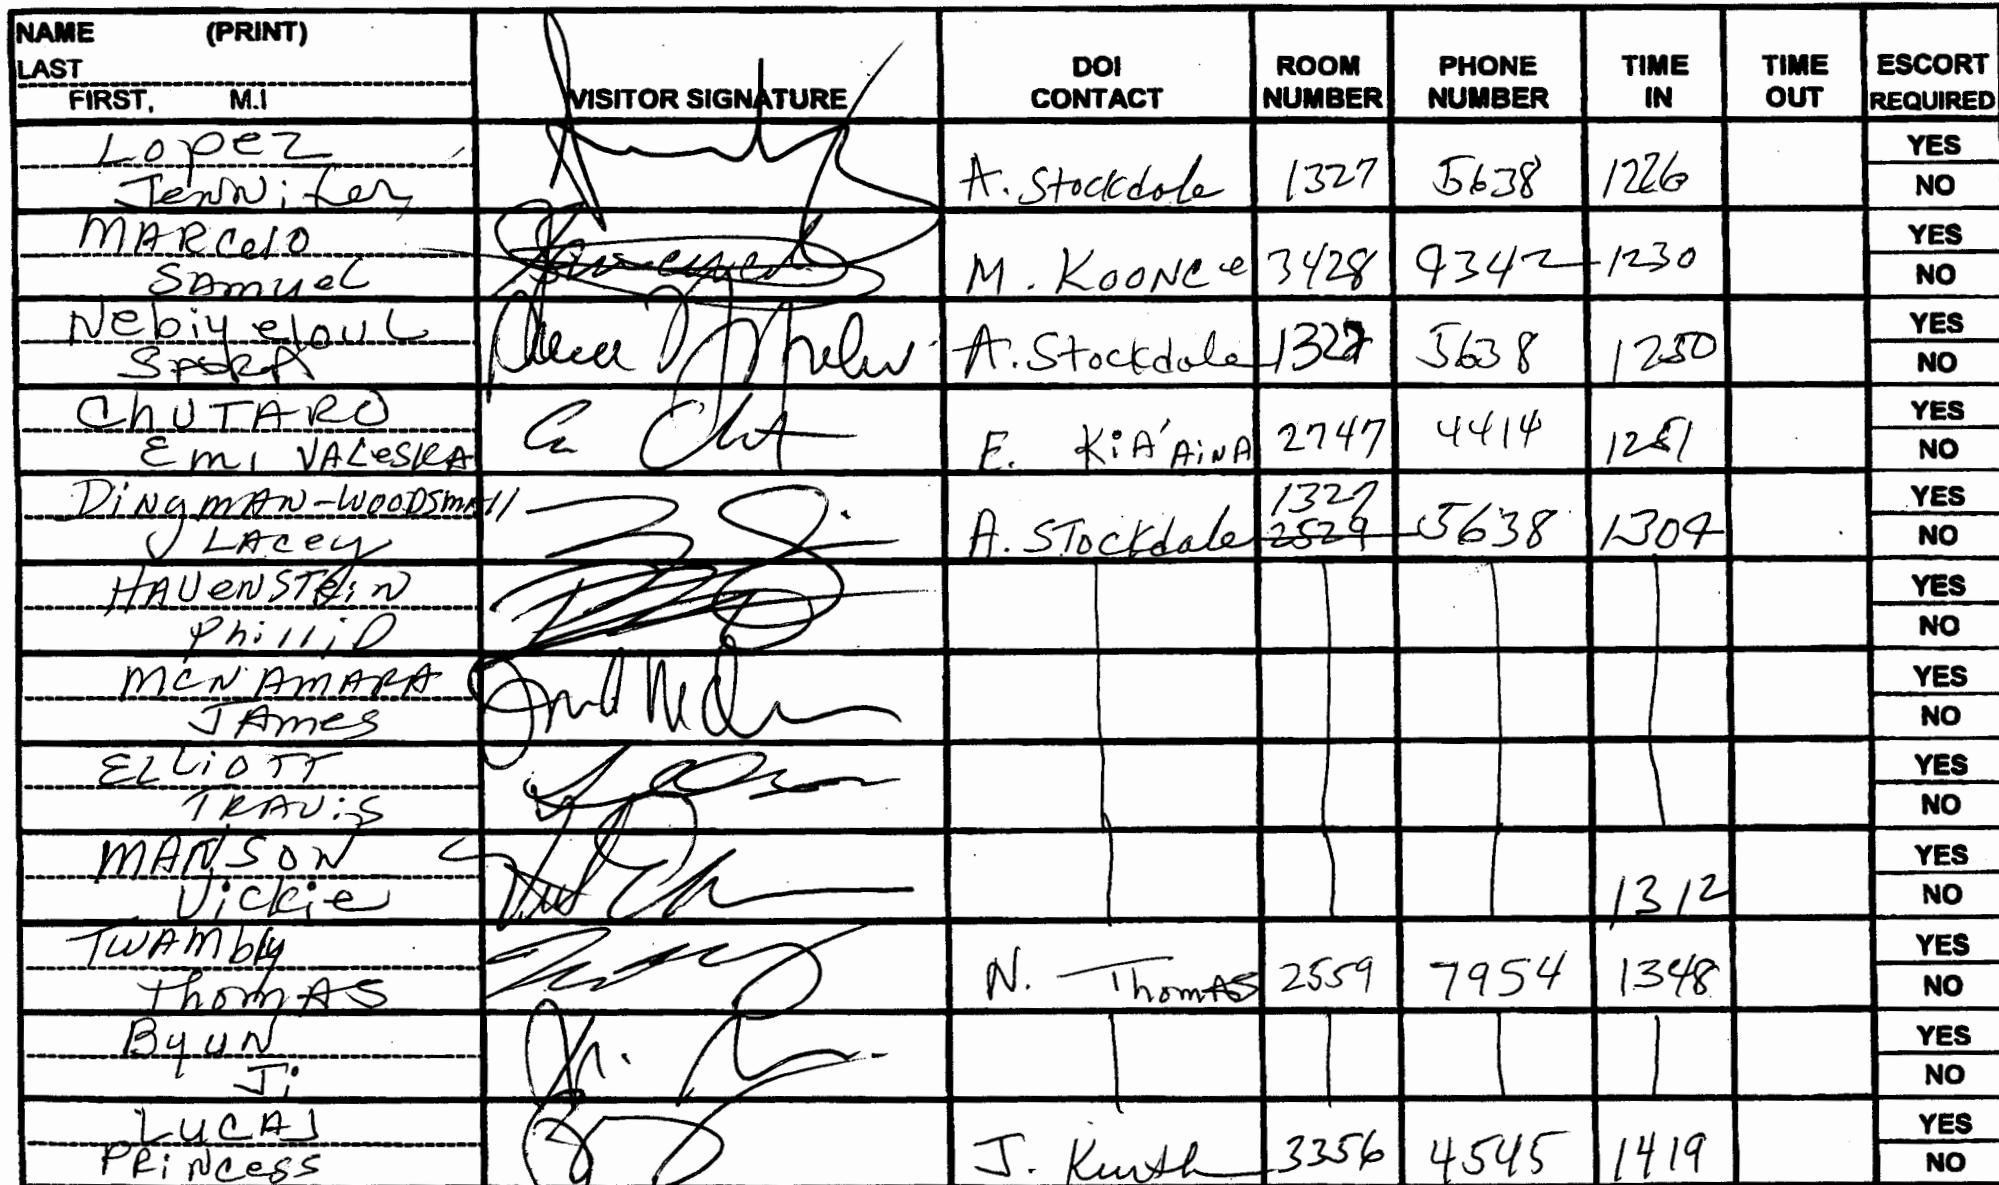 NAME (PRINT)
LAST
FIRST, M.I
VISITOR SIGNATURE
DOI CONTACT
ROOM NUMBER
PHONE NUMBER
TIME IN
TIME OUT
ESCORT REQUIRED
Lopez
Jennifer
A. Stockdale 1327 5638 1226
YES
NO
MARcelO
SAmueL
M. KOONCe 3428 9342 1230
YES
NO
A. Stockdale 1327 5638 1250
YES
NO
ChUTARO
Emi VALeSKA
E. KiA'AiNA 2747 4414 1251
YES
NO
DiNgmAN-WOODSmAll
LAcey
1327
A. STockdale 2529 5638 1304
YES
NO
HAUeNSTeiN
PhilliP
YES
NO
MCNAMARA
JAmes
YES
NO
ELLiOTT
TRAViS
YES
NO
MANSON
Vickie
1312
YES
NO
TWAMbly
ThomAS
N. ThomAS 2559 7954 1348
YES
NO
ByuN
Ji
YES
NO
LUCAJ
PRiNcess
J. Kurth 3356 4545 1419
YES
NO